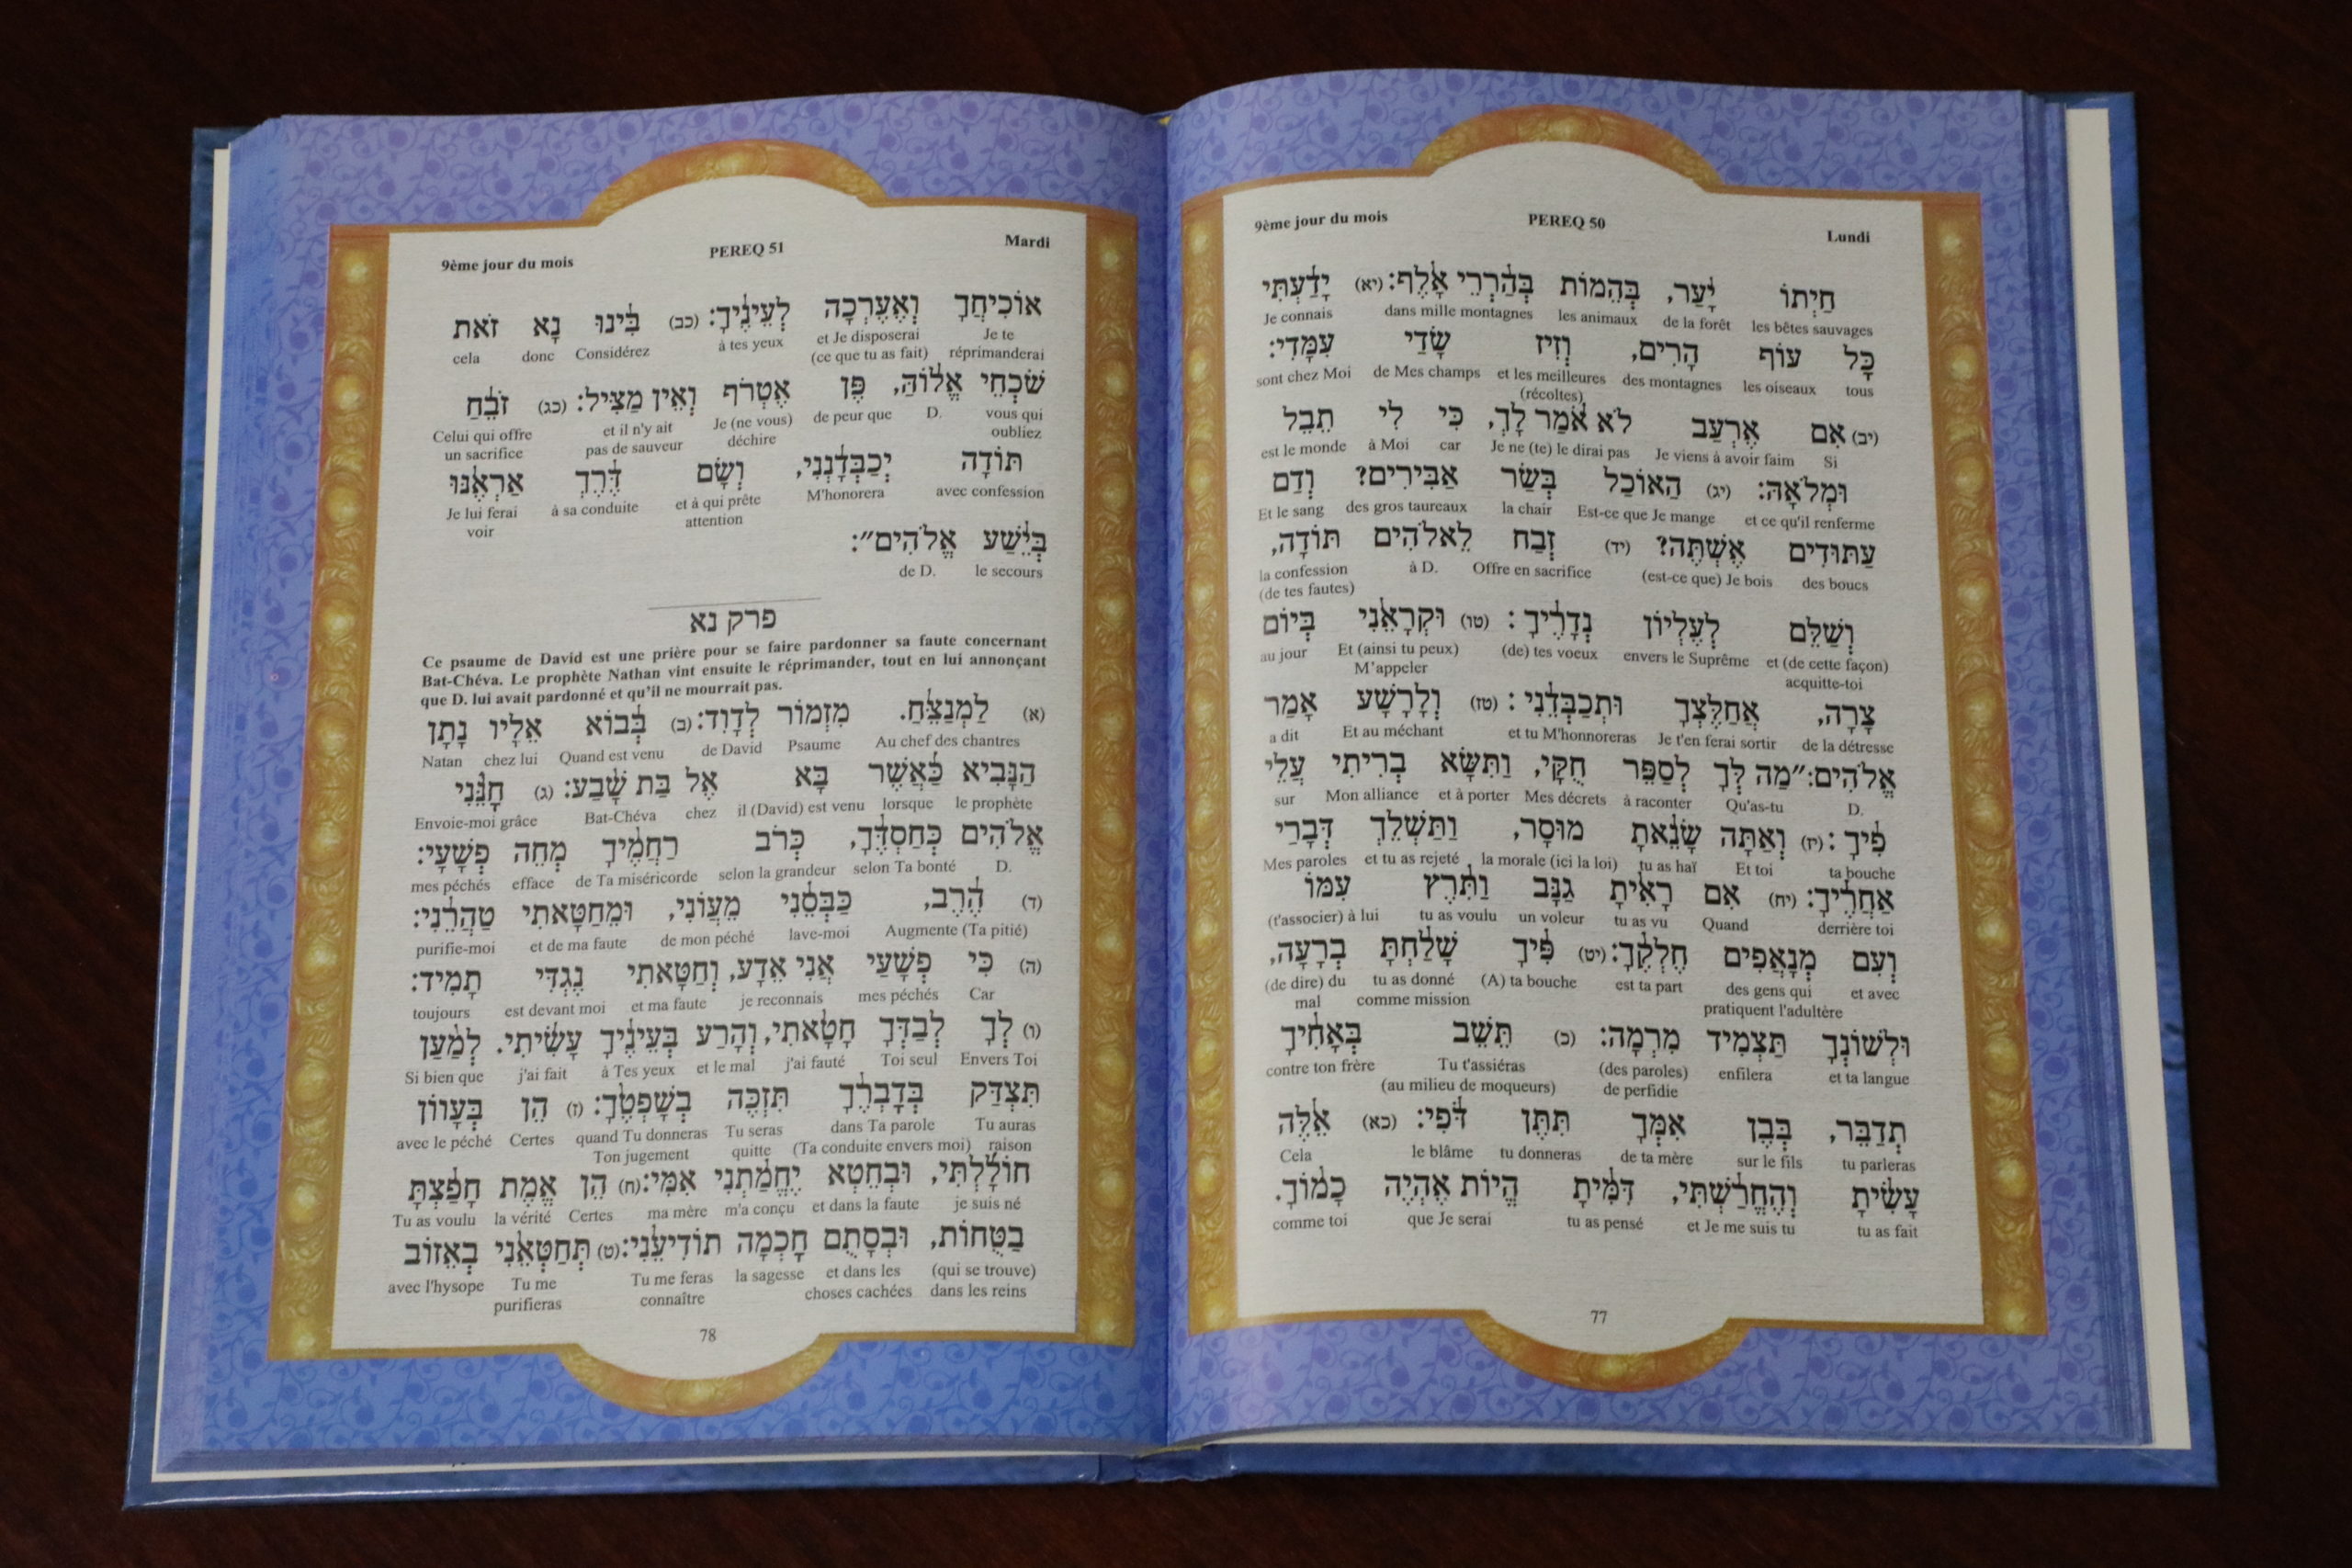 9ème jour du mois PEREQ 50 Lundi
חַיְתוֹ יָעַר, בְּהֵמוֹת בְּהַרְרֵי אָלֶף: (יא) יָדַעְתִּי
Je connais dans mille montagnes les animaux de la forêt les bêtes sauvages
כָּל עוֹף הָרִים, וְזִיז שָׂדַי עִמָּדִי:
sont chez Moi de Mes champs et les meilleures des montagnes les oiseaux tous
(récoltes)
(יב) אִם אֶרְעַב לֹא אֹמַר לָךְ, כִּי לִי תֵבֵל
est le monde à Moi car Je ne (te) le dirai pas Je viens à avoir faim Si
וּמְלֹאָהּ: (יג) הַאוֹכַל בְּשַׂר אַבִּירִים? וְדַם
Et le sang des gros taureaux la chair Est-ce que Je mange et ce qu'il renferme
עַתּוּדִים אֶשְׁתֶּה? (יד) זְבַח לֵאלֹהִים תּוֹדָה,
la confession à D. Offre en sacrifice (est-ce que) Je bois des boucs
(de tes fautes)
וְשַׁלֵּם לְעֶלְיוֹן נְדָרֶיךָ : (טו) וּקְרָאֵנִי בְּיוֹם
au jour Et (ainsi tu peux) (de) tes voeux envers le Suprême et (de cette façon)
M'appeler acquitte-toi
צָרָה, אֲחַלֶּצְךָ וּתְכַבְּדֵנִי : (טז) וְלָרָשָׁע אָמַר
a dit Et au méchant et tu M'honnoreras Je t'en ferai sortir de la détresse
אֱלֹהִים:״מַה לְּךָ לְסַפֵּר חֻקָּי, וַתִּשָּׂא בְרִיתִי עֲלֵי
sur Mon alliance et à porter Mes décrets à raconter Qu'as-tu D.
פִיךָ : (יז) וְאַתָּה שָׂנֵאתָ מוּסָר, וַתַּשְׁלֵךְ דְּבָרַי
Mes paroles et tu as rejeté la morale (ici la loi) tu as haï Et toi ta bouche
אַחֲרֶיךָ: (יח) אִם רָאִיתָ גַנָּב וַתִּרֶץ עִמּוֹ
(t'associer) à lui tu as voulu un voleur tu as vu Quand derrière toi
וְעִם מְנָאֲפִים חֶלְקֶךָ: (יט) פִּיךָ שָׁלַחְתָּ בְרָעָה,
(de dire) du tu as donné (A) ta bouche est ta part des gens qui et avec
mal comme mission pratiquent l'adultère
וּלְשׁוֹנְךָ תַּצְמִיד מִרְמָה: (כ) תֵּשֵׁב בְּאָחִיךָ
contre ton frère Tu t'assiéras (des paroles) enfilera et ta langue
(au milieu de moqueurs) de perfidie
תְדַבֵּר, בְּבֶן אִמְּךָ תִּתֶּן דֹּפִי: (כא) אֵלֶּה
Cela le blâme tu donneras de ta mère sur le fils tu parleras
עָשִׂיתָ וְהֶחֱרַשְׁתִּי, דִּמִּיתָ הֱיוֹת אֶהְיֶה כָמוֹךָ.
comme toi que Je serai tu as pensé et Je me suis tu tu as fait
77
9ème jour du mois PEREQ 51 Mardi
אוֹכִיחֲךָ וְאֶעֶרְכָה לְעֵינֶיךָ: (כב) בִּינוּ נָא זֹאת
cela donc Considérez à tes yeux et Je disposerai Je te
(ce que tu as fait) réprimanderai
שֹׁכְחֵי אֱלוֹהַּ, פֶּן אֶטְרֹף וְאֵין מַצִּיל: (כג) זֹבֵחַ
Celui qui offre et il n'y ait Je (ne vous) de peur que D. vous qui
un sacrifice pas de sauveur déchire oubliez
תּוֹדָה יְכַבְּדָנְנִי, וְשָׂם דֶּרֶךְ אַרְאֶנּוּ
Je lui ferai à sa conduite et à qui prête M'honorera avec confession
voir attention
בְּיֵשַׁע אֱלֹהִים״:
de D. le secours
פרק נא
Ce psaume de David est une prière pour se faire pardonner sa faute concernant
Bat-Chéva. Le prophète Nathan vint ensuite le réprimander, tout en lui annonçant
que D. lui avait pardonné et qu'il ne mourrait pas.
(א) לַמְנַצֵּחַ. מִזְמוֹר לְדָוִד: (ב) בְּבוֹא אֵלָיו נָתָן
Natan chez lui Quand est venu de David Psaume Au chef des chantres
הַנָּבִיא כַּאֲשֶׁר בָּא אֶל בַּת שָׁבַע: (ג) חָנֵּנִי
Envoie-moi grâce Bat-Chéva chez il (David) est venu lorsque le prophète
אֱלֹהִים כְּחַסְדֶּךָ, כְּרֹב רַחֲמֶיךָ מְחֵה פְשָׁעָי:
mes péchés efface de Ta miséricorde selon la grandeur selon Ta bonté D.
(ד) הֶרֶב, כַּבְּסֵנִי מֵעֲוֹנִי, וּמֵחַטָּאתִי טַהֲרֵנִי:
purifie-moi et de ma faute de mon péché lave-moi Augmente (Ta pitié)
(ה) כִּי פְשָׁעַי אֲנִי אֵדָע, וְחַטָּאתִי נֶגְדִּי תָמִיד:
toujours est devant moi et ma faute je reconnais mes péchés Car
(ו) לְךָ לְבַדְּךָ חָטָאתִי, וְהָרַע בְּעֵינֶיךָ עָשִׂיתִי. לְמַעַן
Si bien que j'ai fait à Tes yeux et le mal j'ai fauté Toi seul Envers Toi
תִּצְדַּק בְּדָבְרֶךָ תִּזְכֶּה בְשָׁפְטֶךָ: (ז) הֵן בְּעָווֹן
avec le péché Certes quand Tu donneras Tu seras dans Ta parole Tu auras
Ton jugement quitte (Ta conduite envers moi) raison
חוֹלָלְתִּי, וּבְחֵטְא יֶחֱמַתְנִי אִמִּי:(ח) הֵן אֱמֶת חָפַצְתָּ
Tu as voulu la vérité Certes ma mère m'a conçu et dans la faute je suis né
בַטֻּחוֹת, וּבְסָתֻם חָכְמָה תוֹדִיעֵנִי:(ט) תְּחַטְּאֵנִי בְאֵזוֹב
avec l'hysope Tu me Tu me feras la sagesse et dans les (qui se trouve)
purifieras connaître choses cachées dans les reins
78